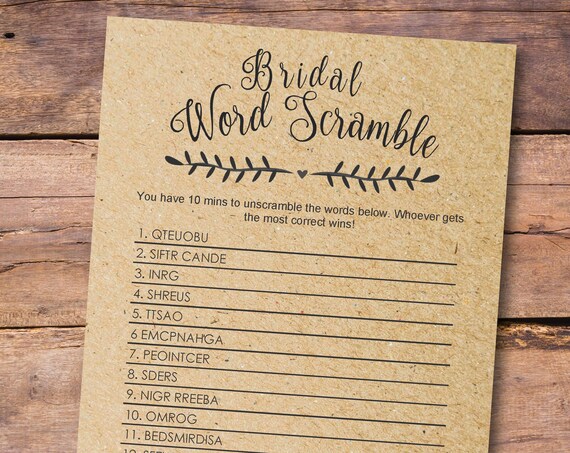 Bridal
Word Scramble
You have 10 mins to unscramble the words below. Whoever gets
the most correct wins!
1. QTEUOBU
2. SIFTR CANDE
3. INRG
4. SHREUS
5. TTSAO
6 EMCPNAHGA
7. PEOINTCER
8. SDERS
9. NIGR RREEBA
10. OMROG
11. BEDSMIRDISA